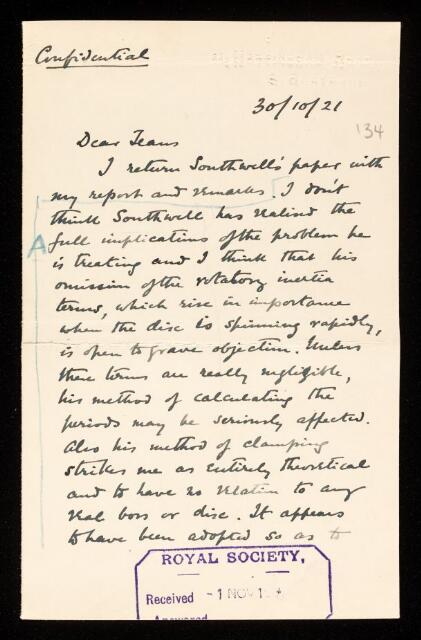 Confidential
30/10/21
134
Dear Jeans
I return Southwell's paper with
my report and remarks. I don't
think Southwell has realised the
A
full implications of the problem he
is treating and I think that his
omission of the rotatory inertia
terms, which rise in importance
when the disc is spinning rapidly,
is open to grave objection. Unless
these terms are really negligible,
his method of calculating the
periods may be seriously affected.
Also his method of clamping
strikes me as entirely theoretical
and to have no relation to any
real boss or disc. It appears
to have been adopted so as to
ROYAL SOCIETY,
Received -1 NOV 1
Answered